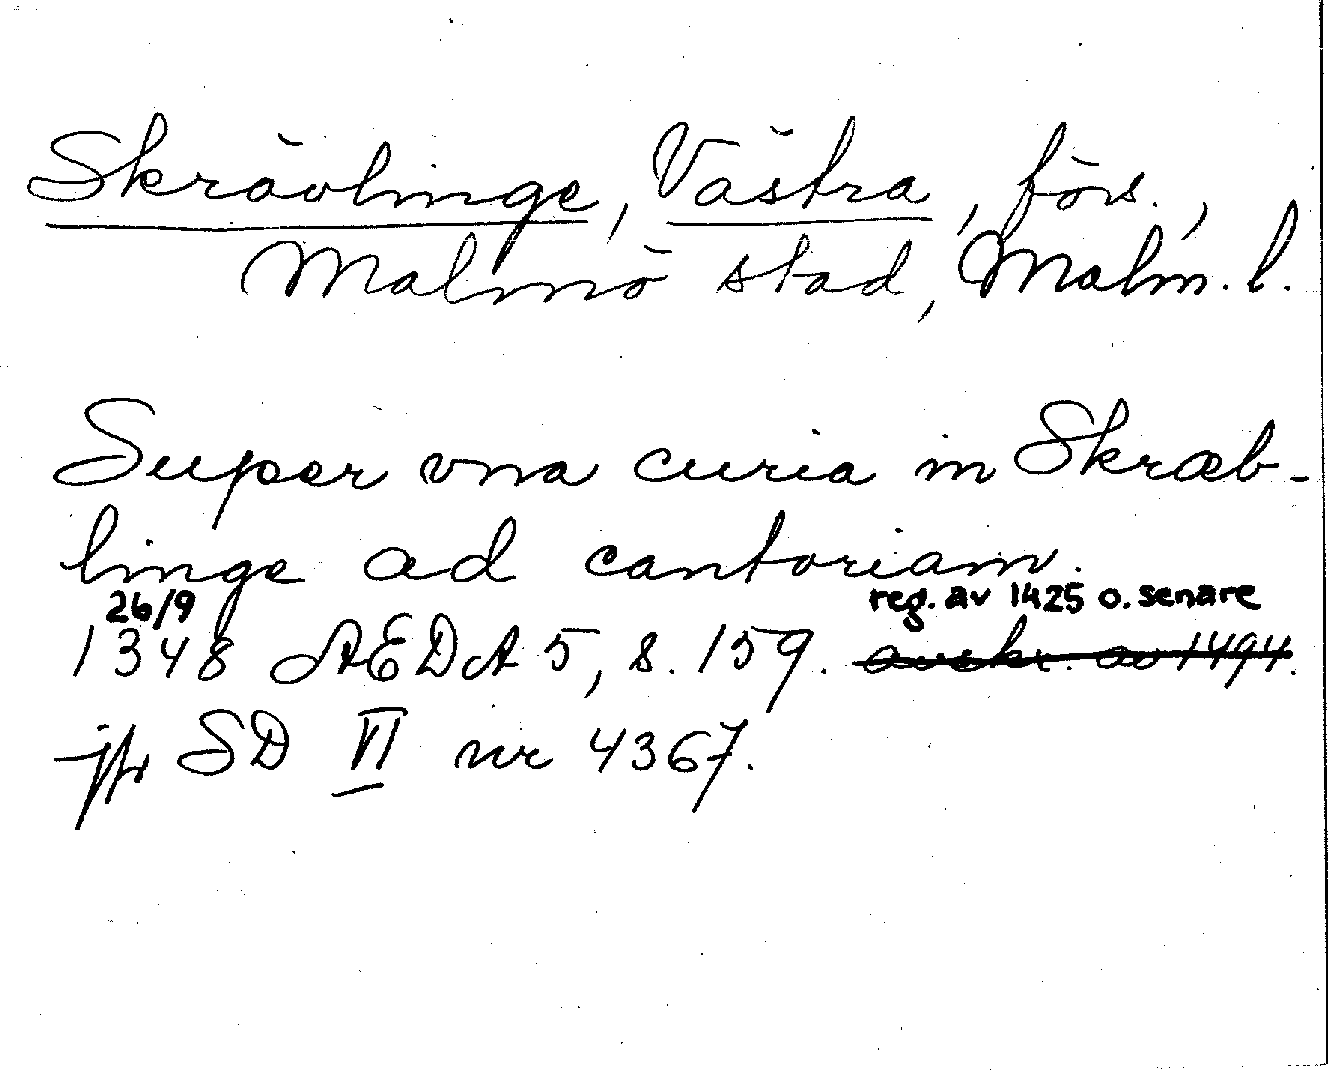 Skrävlinge, Västra, förs.,
Malmö stad, Malm. l.
Super vna curia in Skræb-
linge ad cantoriam.
26/9 reg. av 1425 o. senare
1348 AEDA 5, s. 159. avskr. av 1494.
jfr SD VI nr 4367.